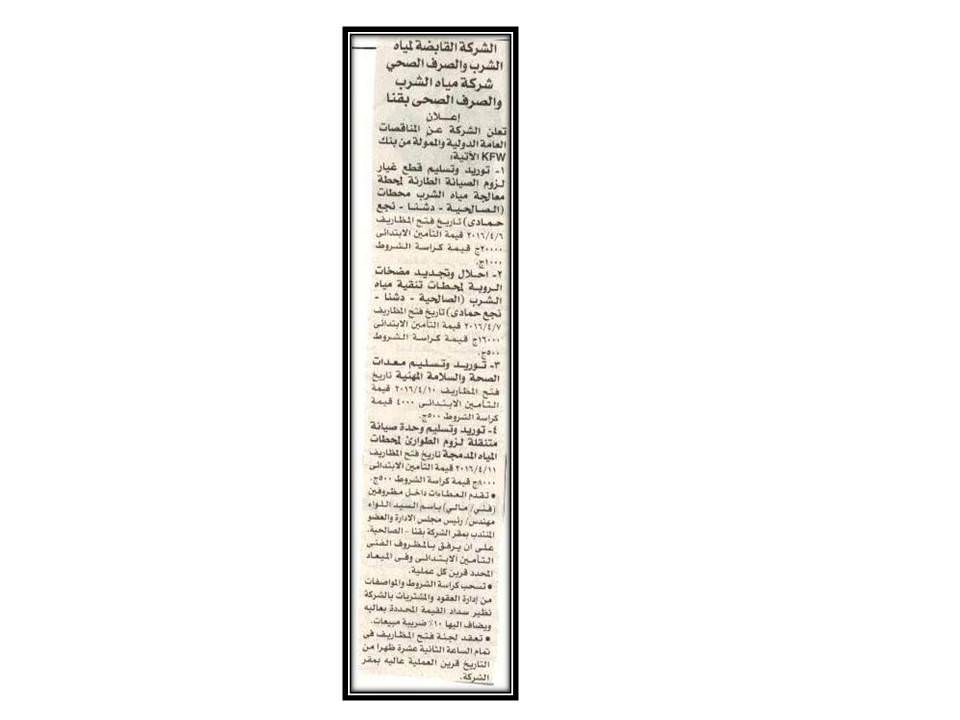 الشركة القابضة لمياه
الشرب والصرف الصحي
شركة مياه الشرب
والصرف الصحى بقنا
إعـــلان
تعلن الشركة عن المناقصات
العامة الدولية والممولة من بنك
KFW الآتية:
١- توريد وتسليم قطع غيار
لزوم الصيانة الطارئة لمحطة
معالجة مياه الشرب محطات
(الصالحية - دشنا - نجع
حمادى) تاريخ فتح المظاريف
٢٠١٦/٤/٦ قيمة التأمين الابتدائى
٢٠٠٠٠ج قيمة كراسة الشروط
١٠٠٠ج.
٢- احلال وتجديد مضخات
الروبة لمحطات تنقية مياه
الشرب (الصالحية - دشنا -
نجع حمادى) تاريخ فتح المظاريف
٢٠١٦/٤/٧ قيمة التأمين الابتدائى
١٦٠٠٠ج قيمة كراسة الشروط
٥٠٠ج.
٣- توريد وتسليم معدات
الصحة والسلامة المهنية تاريخ
فتح المظاريف ٢٠١٦/٤/١٠ قيمة
التأمين الابتدائى ٤٠٠٠ قيمة
كراسة الشروط ٥٠٠ج.
٤- توريد وتسليم وحدة صيانة
متنقلة لزوم الطوارئ لمحطات
المياه المدمجة تاريخ فتح المظاريف
٢٠١٦/٤/١١ قيمة التأمين الابتدائى
٨٠٠٠ج قيمة كراسة الشروط ٥٠٠ج.
• تقدم العطاءات داخل مظروفين
(فنى/ مالى) باسم السيد اللواء
مهندس/ رئيس مجلس الادارة والعضو
المنتدب بمقر الشركة بقنا - الصالحية.
على ان يرفق بالمظروف الفنى
التأمين الابتدائى وفى الميعاد
المحدد قرين كل عملية.
• تسحب كراسة الشروط والمواصفات
من إدارة العقود والمشتريات بالشركة
نظير سداد القيمة المحددة بعاليه
ويضاف اليها ١٠٪ ضريبة مبيعات.
• تعقد لجنة فتح المظاريف فى
تمام الساعة الثانية عشرة ظهرا من
التاريخ قرين العملية عاليه بمقر
الشركة.